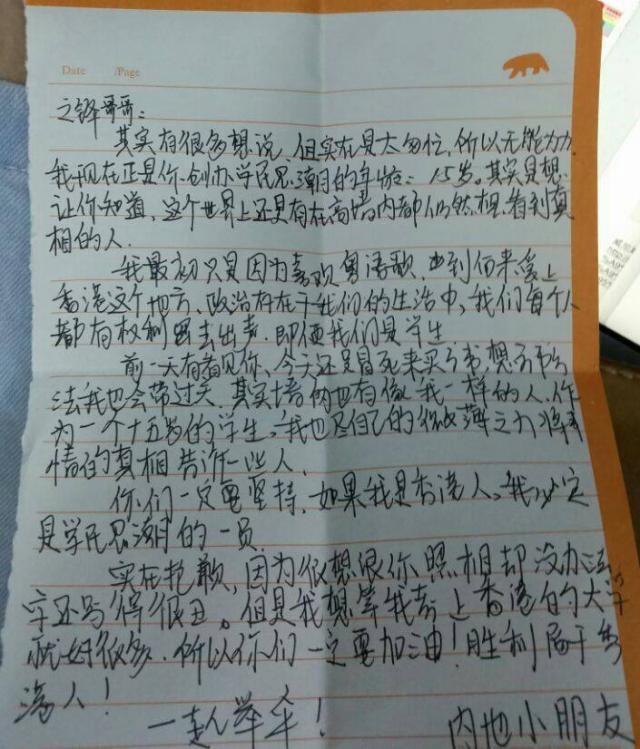 Date /Page
之锋哥哥：
其实有很多想说，但实在是太匆忙，所以无能为力，
我现在正是你创办学民思潮时的年龄：15岁。其实是想
让你知道，这个世界上还是有在高墙内却仍然想看到真
相的人.
我最初只是因为喜欢粤语歌，到后来爱上
香港这个地方，政治存在于我们的生活中，我们每个人
都有权利去出声，即使我们是学生
前一天有看见你，今天还是冒死来买了书，想
法我也会带过关，其实墙内也有像我一样的人，作
为一个十五岁的学生，我也尽自己的微薄之力将
情的真相告诉一些人.
你们一定要坚持，如果我是香港人，我必定
是学民思潮的一员
实在抱歉，因为很想跟你照相却没办法，
字还写得很丑。但是我想等我考上香港的大学
就好很多，所以你们一定要加油！胜利属于香
港人！
一起举伞！ 内地小朋友